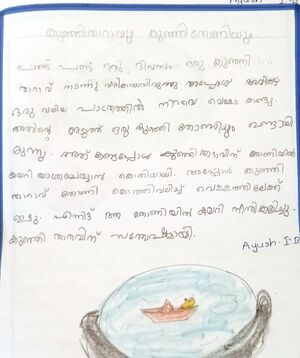 Ayush I-B
കുഞ്ഞിതാറാവും കുഞ്ഞിതോണിയും
പണ്ട് പണ്ട് ഒരു ദിവസം ഒരു കുഞ്ഞി
താറാവ് നടന്നു വരികയായിരുന്നു അപ്പോഴേ അവിടെ
ഒരു വലിയ പാത്രത്തിൽ നിറയെ വെള്ളം കണ്ടു.
അതിന്റെ അടുത്ത് ഒരു കുഞ്ഞി തോണിയും ഉണ്ടായി
രുന്നു. അത് കണ്ടപ്പോൾ കുഞ്ഞിതാറാവിന് തോണിയിൽ
കയറി യാത്രചെയ്യാൻ കൊതിയായി. അപ്പോൾ കുഞ്ഞി
താറാവ് തോണി കൊത്തിവലിച്ച് വെള്ളത്തിലേക്ക്
ഇട്ടു. എന്നിട്ട് ആ തോണിയിൽ കയറി നീന്തികളിച്ചു.
കുഞ്ഞി താറാവിന് സന്തോഷമായി.
Ayush. I-B